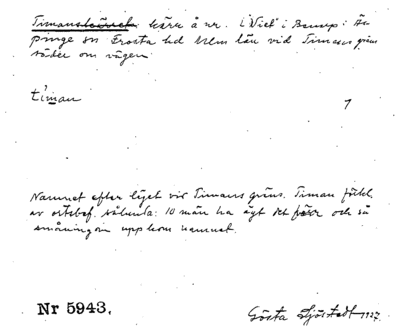 Timans kärr å nr. i "Viet" i Benarp: Äs
pinge sn Frosta hd Mlm län vid Timans gräns
söder om vägen
timan
1
Namnet efter läget vid Timans gräns. Timan förkl.
av ortsbef. sålunda: 10 män ha ägt det förr och så
småningom uppkom namnet.
Nr 5943.
Gösta Sjöstedt 1927.